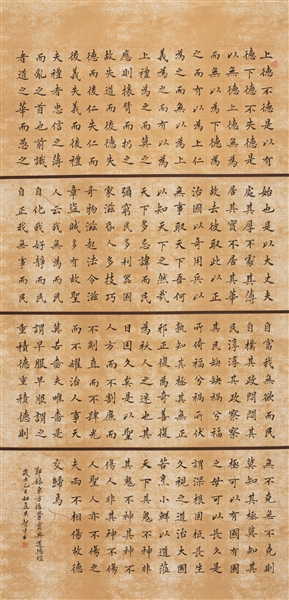 上德不德是以有
德下德不失德是
以無德上德無為
而無以為下德為
之而有以為上仁
為之而無以為上
義為之而有以為
上禮為之而莫之
應則攘臂而扔之
故失道而後德失
德而後仁失仁而
後義失義而後禮
夫禮者忠信之薄
而亂之首也前識
者道之華而愚之
始也是以大丈夫
處其厚不居其薄
居其實不居其華
故去彼取此以正
治國以奇用兵以
無事取天下吾何
以知天下之然哉
天下多忌諱而民
彌窮民多利器國
家滋昏人多技巧
奇物滋起法令滋
章盜賊多有故聖
人云我無為而民
自化我好靜而民
自正我無事而民
自富我無欲而民
自樸其政悶悶其
民淳淳其政察察
其民缺缺禍兮福
所倚福兮禍所伏
孰知其極其無正
邪正復為奇善復
為祅人之迷也其
日固久矣是以聖
人方而不割廉而
不劌直而不肆光
而不耀治人事天
莫若嗇夫唯嗇是
謂早服早服謂之
重積德重積德則
無不克無不克則
莫知其極莫知其
極可以有國有國
之母可以長久是
謂深根固柢長生
久視之道治大國
若烹小鮮以道蒞
天下其鬼不神非
其鬼不神其神不
傷人非其神不傷
人聖人亦不傷之
夫兩不相傷故德
交歸焉
道德經